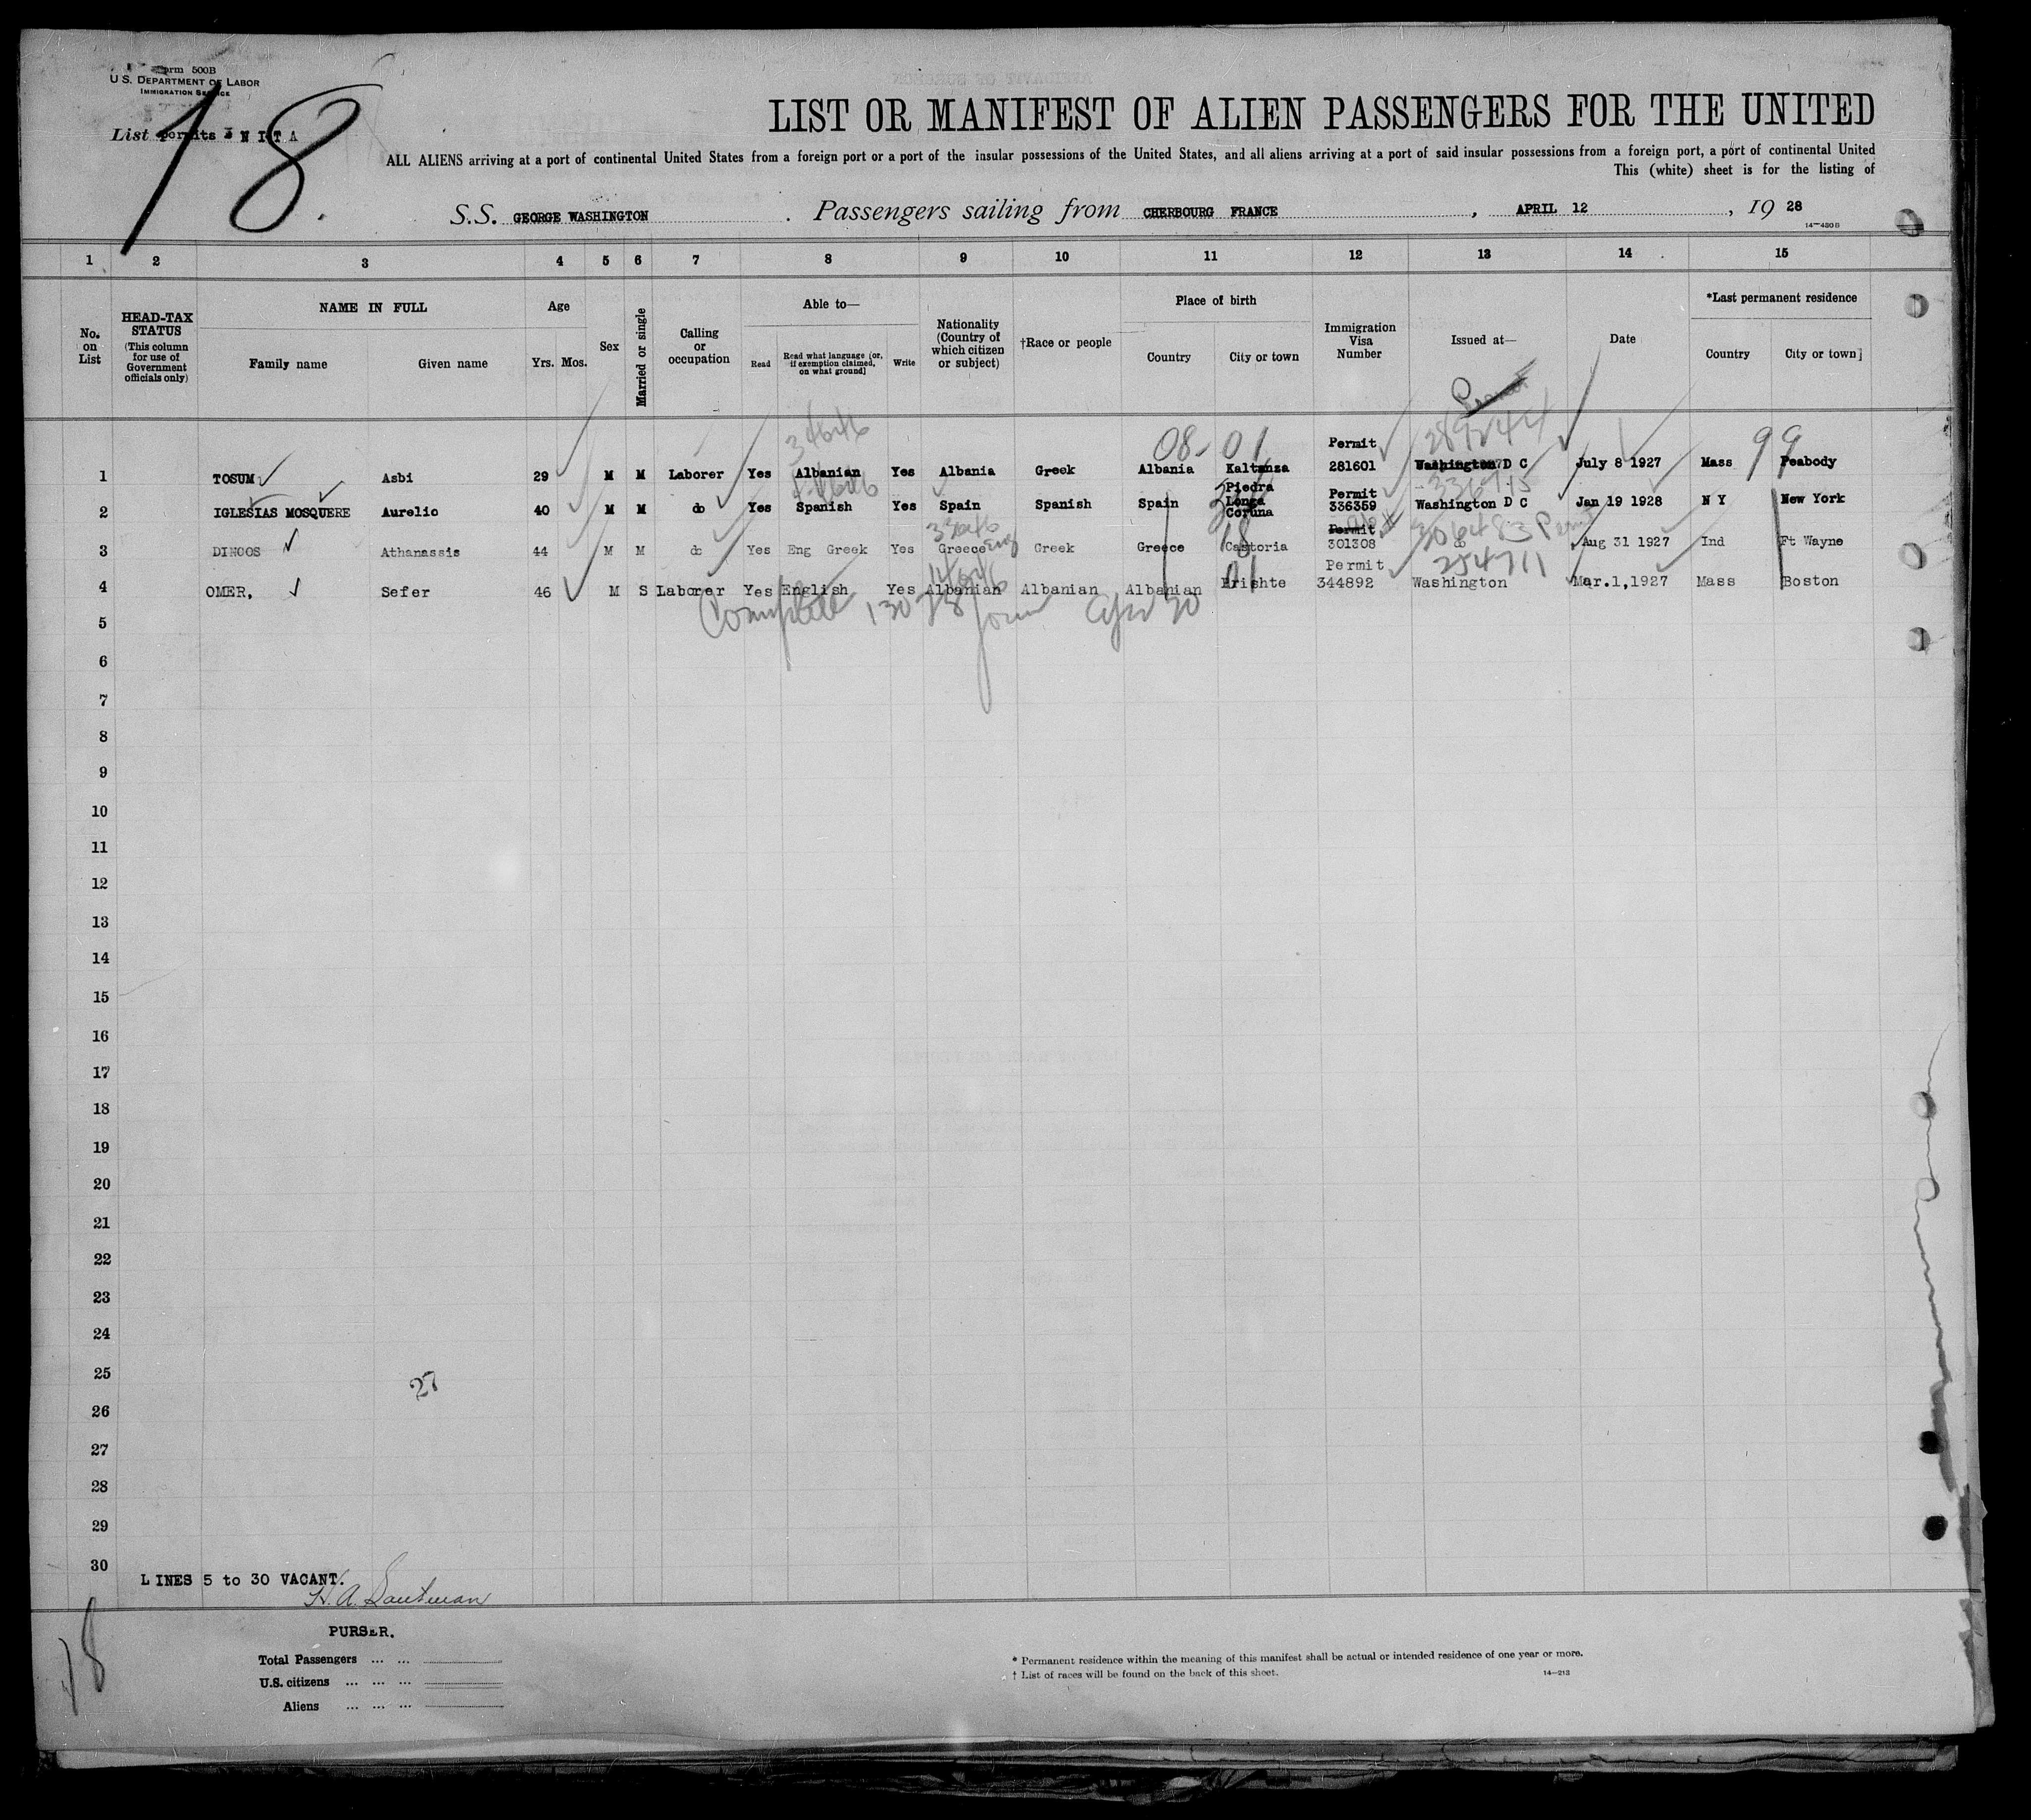 Form 500B
U.S. DEPARTMENT OF LABOR
IMMIGRATION SERVICE
List permits
18
LIST OR MANIFEST OF ALIEN PASSENGERS FOR THE UNITED
ALL ALIENS arriving at a port of continental United States from a foreign port or a port of the insular possessions of the United States, and all aliens arriving at a port of said insular possessions from a foreign port, a port of continental United
This (white) sheet is for the listing of
S.S. GEORGE WASHINGTON . Passengers sailing from CHERBOURG FRANCE , APRIL 12 , 19 28
14—480 B
1 2 3 4 5 6 7 8 9 10 11 12 13 14 15
No. on List
HEAD-TAX STATUS (This column for use of Government officials only)
NAME IN FULL
Family name Given name
Age
Yrs. Mos.
Sex
Married or single
Calling or occupation
Able to—
Read Read what language [or, if exemption claimed, on what ground] Write
Nationality (Country of which citizen or subject)
†Race or people
Place of birth
Country City or town
Immigration Visa Number
Issued at—
Date
*Last permanent residence
Country City or town]
08-01
99
289244
1 TOSUM Asbi 29 M M Laborer Yes Albanian Yes Albania Greek Albania Kaltanza Permit 281601 Washington D C July 8 1927 Mass Peabody
2 IGLESIAS MOSQUERE Aurelio 40 M M do Yes Spanish Yes Spain Spanish Spain Piedra Longa Coruna Permit 336359 Washington D C Jan 19 1928 N Y New York
306483 Permit
3 DINCOS Athanassis 44 M M do Yes Eng Greek Yes Greece Greek Greece Castoria Permit 301308 do Aug 31 1927 Ind Ft Wayne
254711
4 OMER, Sefer 46 M S Laborer Yes English Yes Albanian Albanian Albanian Brishte Permit 344892 Washington Mar.1,1927 Mass Boston
Complete
5
6
7
8
9
10
11
12
13
14
15
16
17
18
19
20
21
22
23
24
25
27
26
27
28
29
30
LINES 5 to 30 VACANT.
PURSER.
18
Total Passengers ... ...
U.S. citizens ... ... ...
Aliens ... ... ...
* Permanent residence within the meaning of this manifest shall be actual or intended residence of one year or more.
† List of races will be found on the back of this sheet.
14—213